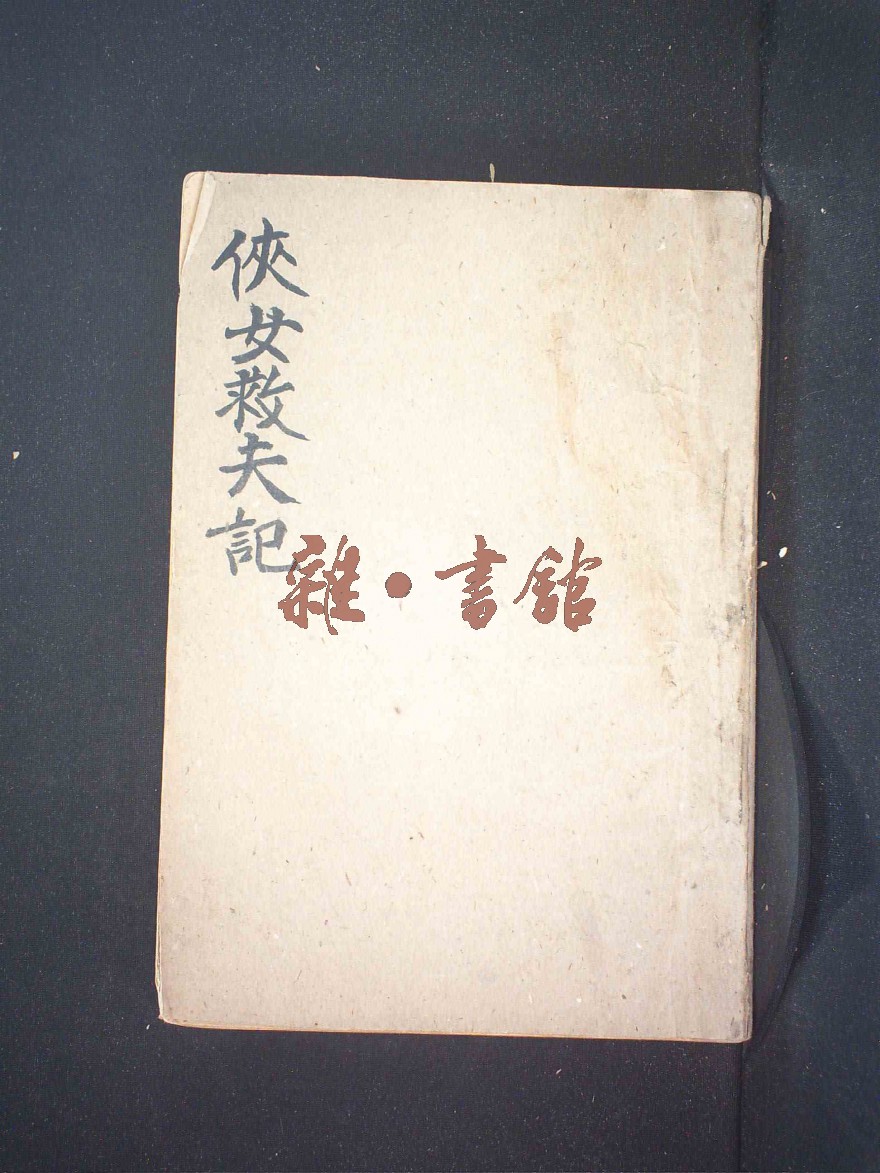 俠女救夫記
雜·書館